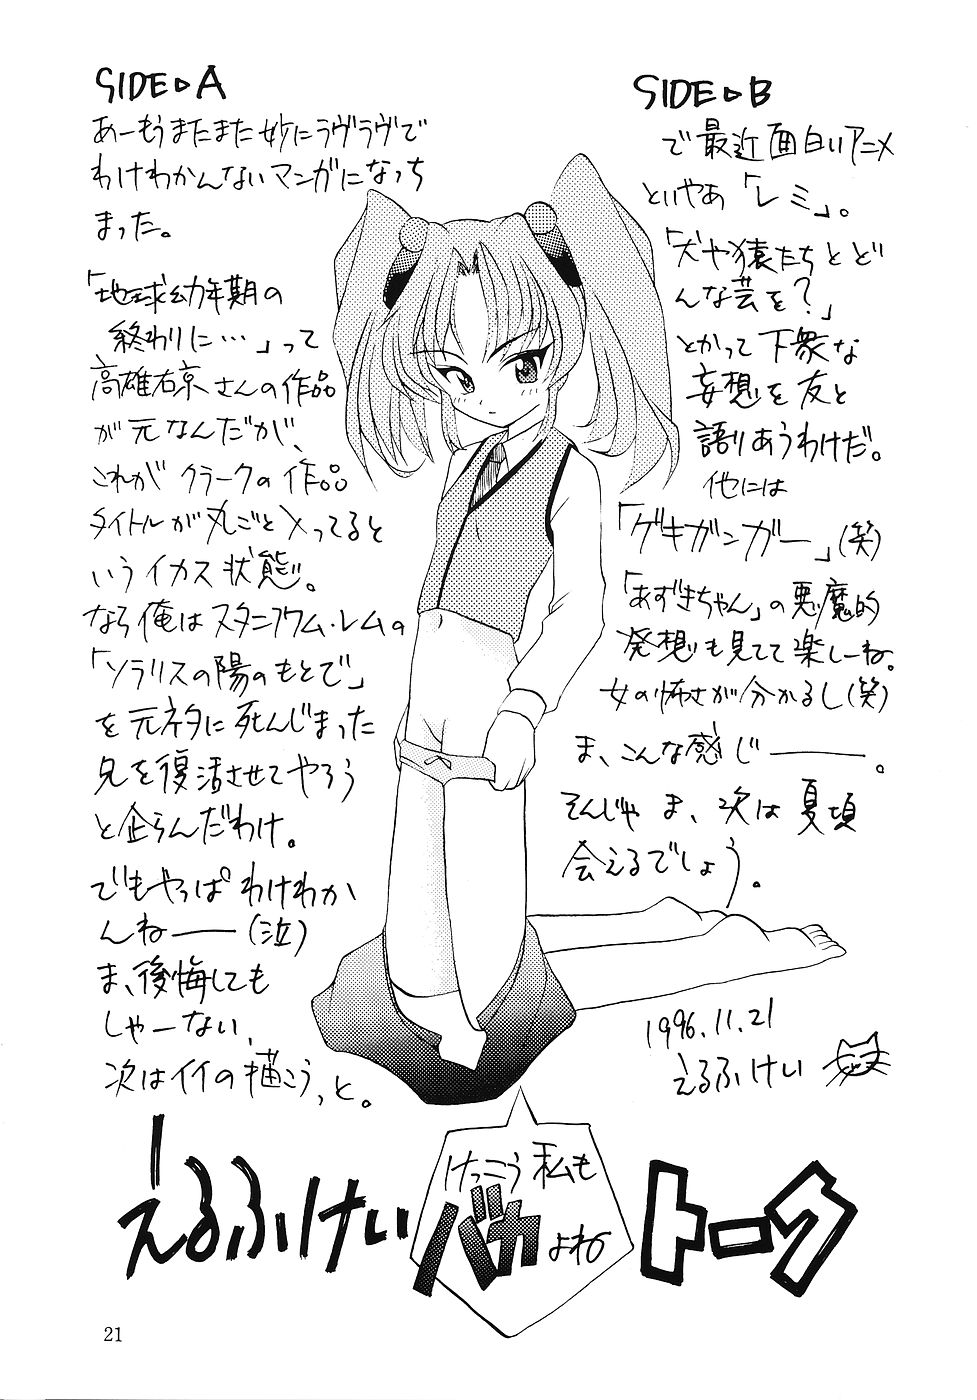 SIDE▷A
あーもうまたまた妙にラヴラヴで
わけわかんないマンガになっち
まった。
「地球幼年期の
終わりに…」って
高雄右京さんの作品
が元なんだが、
これがクラークの作品
タイトルが丸ごと入ってると
いうイカス状態。
なら俺はスタニフワム・レムの
「ソラリスの陽のもとで」
を元ネタに死んじまった
兄を復活させてやろう
と企らんだわけ。
でもやっぱわけわか
んね――(泣)
ま、後悔しても
しゃーない、
次はイイの描こうっと。
SIDE▷B
で最近面白いアニメ
といやあ「レミ」。
「犬や猿たちとど
んな芸を?」
とかって下衆な
妄想を友と
語りあうわけだ。
他には
「ゲキガンガー」(笑)
「あずきちゃん」の悪魔的
発想も見てて楽しーね。
女の怖さが分かるし(笑)
ま、こんな感じ――。
そんじゃま、次は夏頃
会えるでしょう。
1996.11.21
えるふけい
けっこう私も
バカよね
えるふけいバカトーク
21